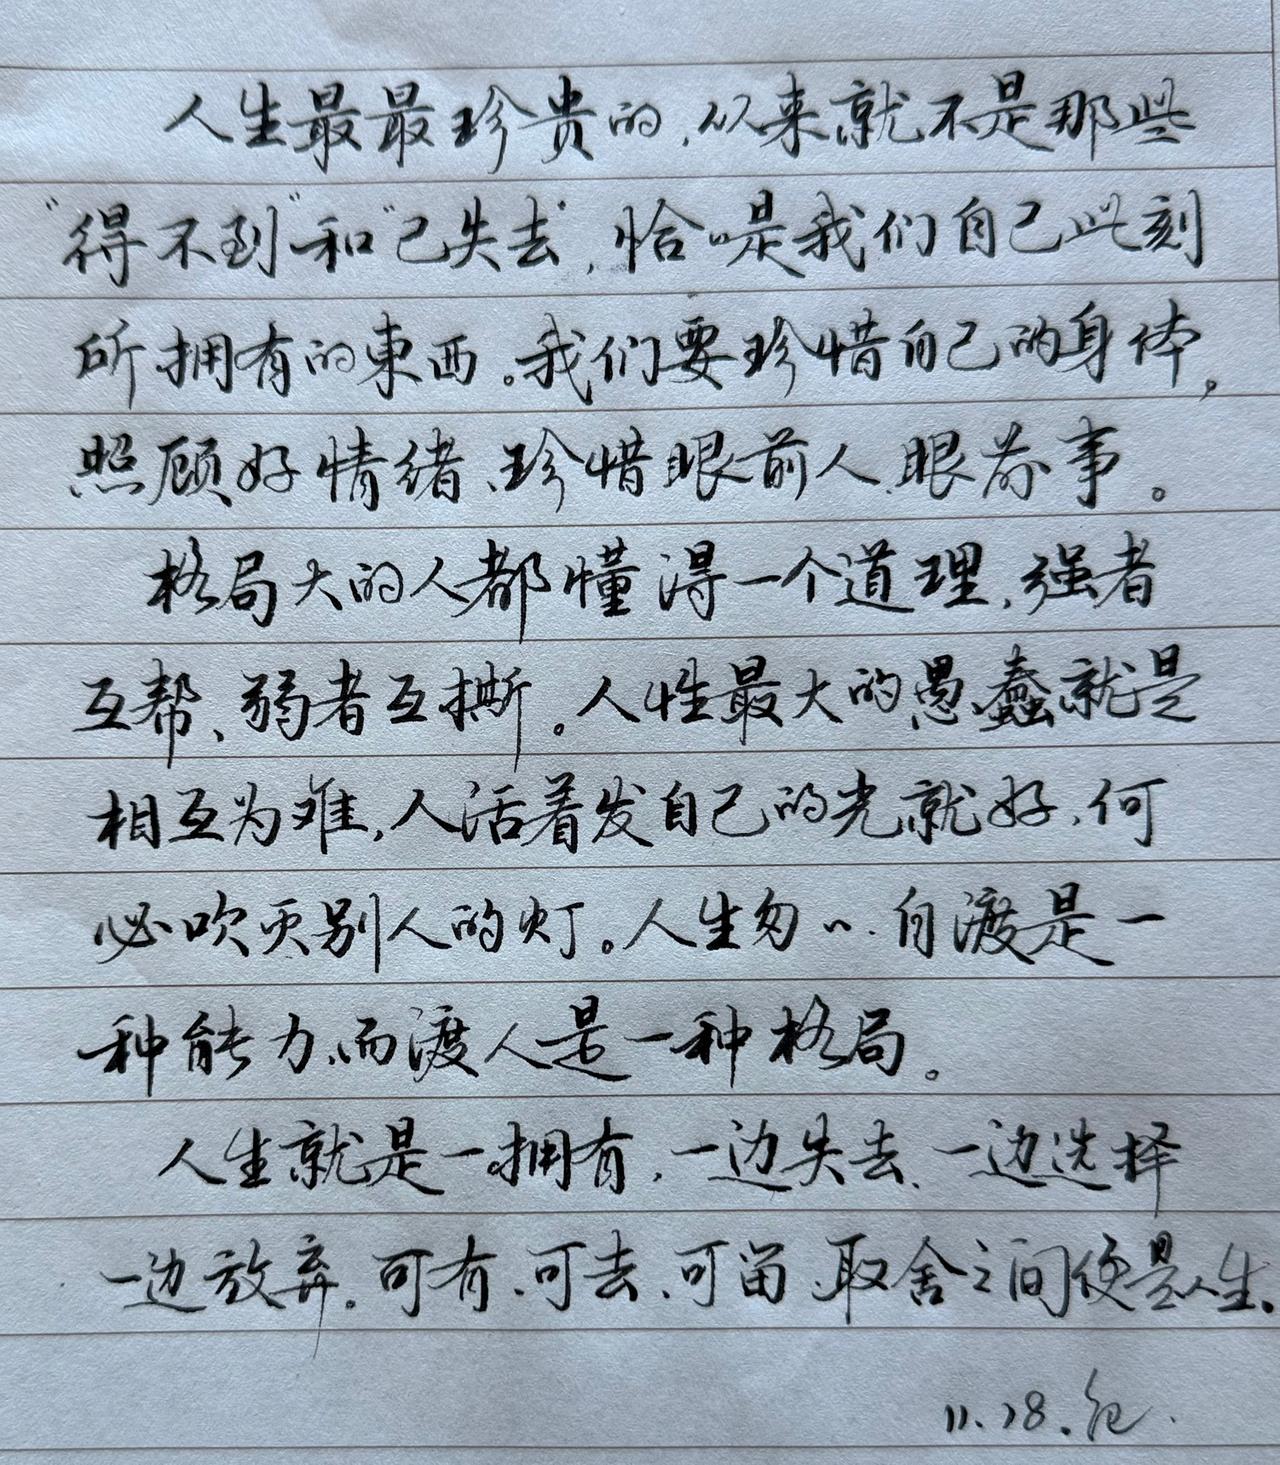 人生最最珍贵的,从来就不是那些
“得不到”和“已失去”,恰是我们自己此刻
所拥有的東西。我们要珍惜自己的身体,
照顾好情绪、珍惜眼前人、眼前事。
格局大的人都懂得一个道理,强者
互帮、弱者互撕。人性最大的愚蠢就是
相互为难,人活着发自己的光就好,何
必吹灭别人的灯。人生匆〃.自渡是一
种能力、而渡人是一种格局。
人生就是一拥有,一边失去、一边选择
一边放弃。可有、可去、可留、取舍之间便是人生。
11.28.